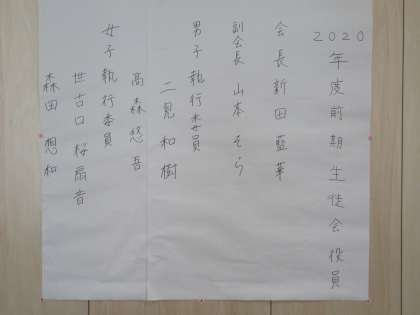 2020年度前期生徒会役員
会長 新田藍華
副会長 山本そら
男子執行委員
二見和樹
高森悠吾
女子執行委員
世古口 桜
森田 想和